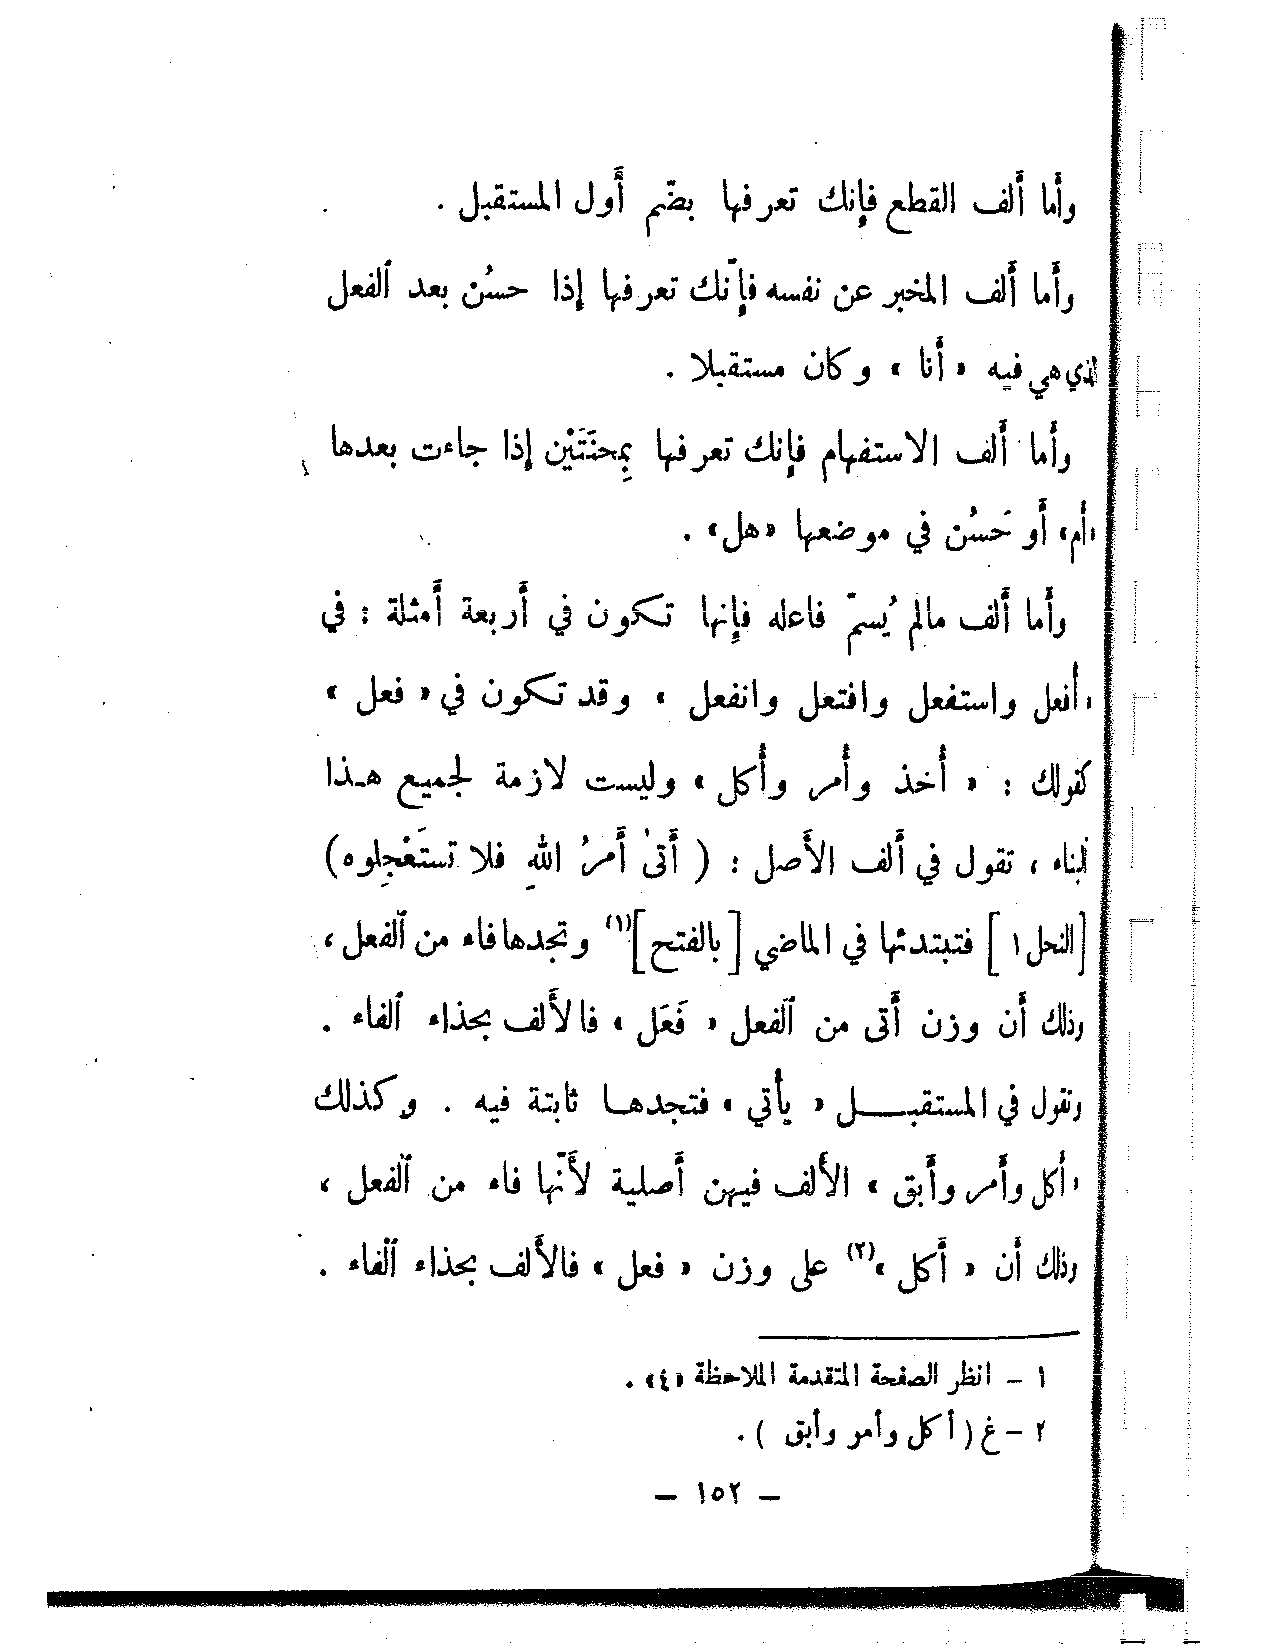 وأَما أَلف القطع فإنك تعرفها بضّم أَول المستقبل .
وأَما أَلف المخبر عن نفسه فإنّك تعرفها إذا حسُن بعد ٱلفعل
الذي هي فيه « أَنا » وكان مستقبلا .
وأَما أَلف الاستفهام فإنك تعرفها بِمِحنَتَيْن إذا جاءت بعدها
«أَم» أَو حَسُن في موضعها «هل» .
وأَما أَلف مالم يُسمّ فاعله فإنها تكون في أَربعة أَمثلة : في
«أُفعل واستفعل وافتعل وانفعل » وقد تكون في « فعل »
كقولك : « أَخذ وأَمر وأَكل » وليست لازمة لجميع هذا
ٱلبناء ، تقول في أَلف الأَصل : ( أَتىٰ أَمرُ اللهِ فلا تستَعْجِلوه)
[النحل ١] فتبتدئها في الماضي [بالفتح](١) وتجدها فاء من ٱلفعل ،
وذلك أَن وزن أَتى من ٱلفعل « فَعَل » فالأَلف بحذاء ٱلفاء .
وتقول في المستقبـــل « يأتي » فتجدهـا ثابتة فيه . وكذلك
«أَكل وأَمر وأَبق » الأَلف فيهن أَصلية لأَنّها فاء من ٱلفعل ،
وذلك أَن « أَكل »(٢) على وزن « فعل » فالأَلف بحذاء ٱلفاء .
١ – انظر الصفحة المتقدمة الملاحظة «٤» .
٢ – غ ( أكل وأمر وأبق ) .
– ١٥٢ –